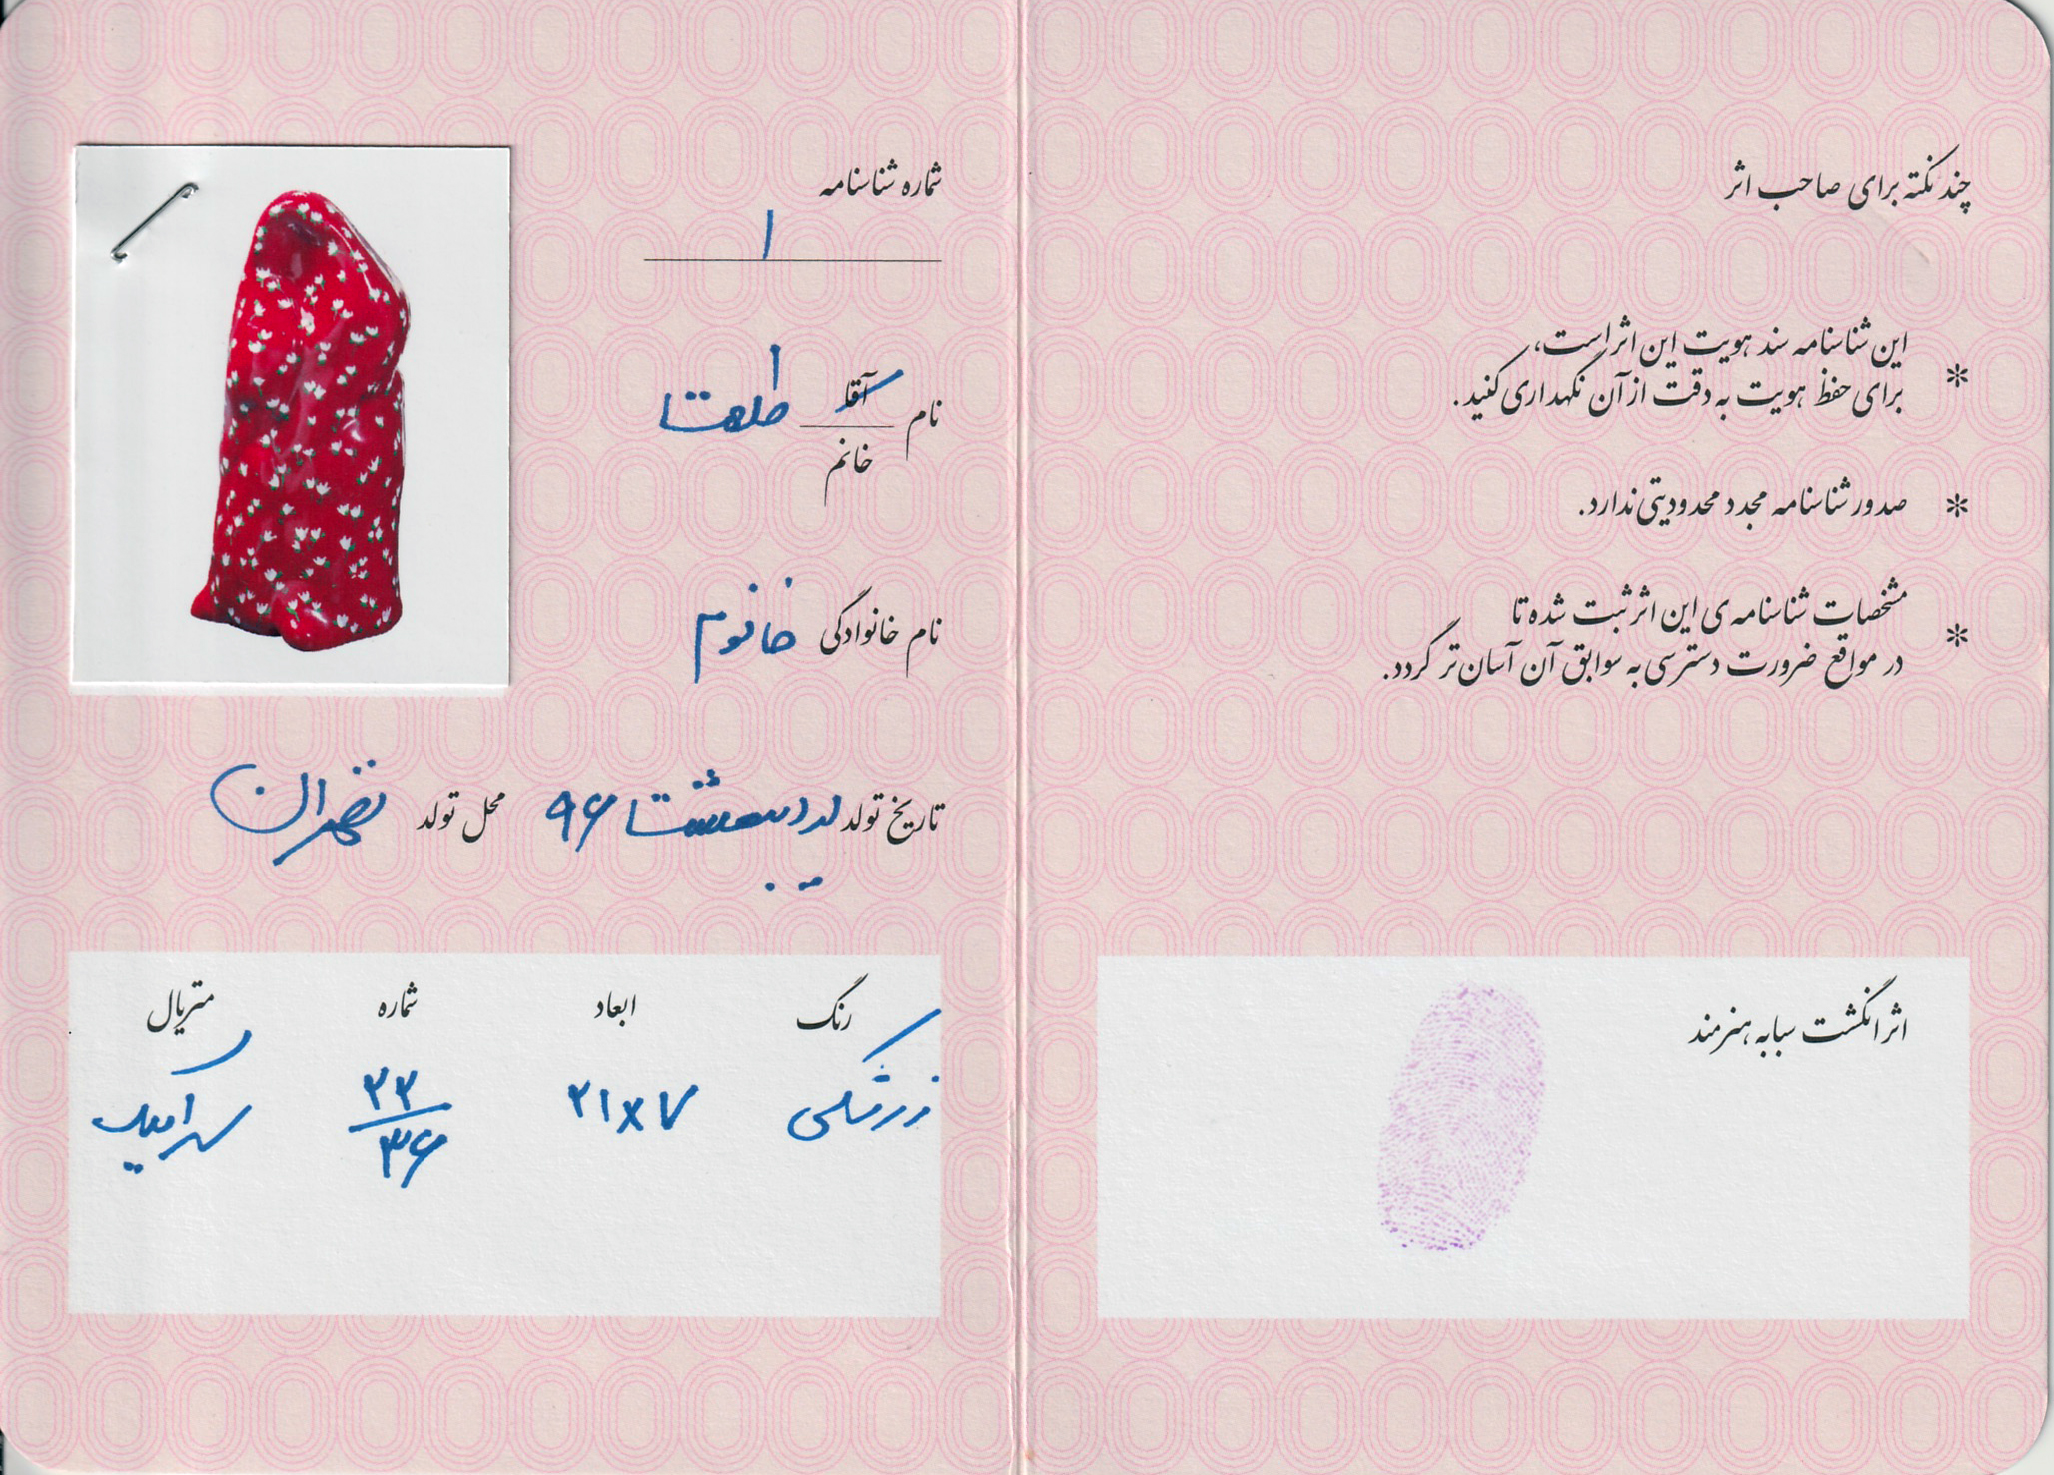 چند نکته برای صاحب اثر
* این شناسنامه سند هویت این اثر است،
برای حفظ هویت به دقت از آن نگهداری کنید.
* صدور شناسنامه مجدد محدودیتی ندارد.
* مشخصات شناسنامه‌ی این اثر ثبت شده تا
در مواقع ضرورت دسترسی به سوابق آن آسان‌تر گردد.
اثر انگشت سبابه هنرمند
شماره شناسنامه
۱
نام آقا خانم طلعت
نام خانوادگی خانوم
تاریخ تولد اردیبهشت ۹۶ محل تولد تهران
رنگ ابعاد شماره متریال
زرشکی ۲۱x۷ ۳۳/۳۶ سرامیک